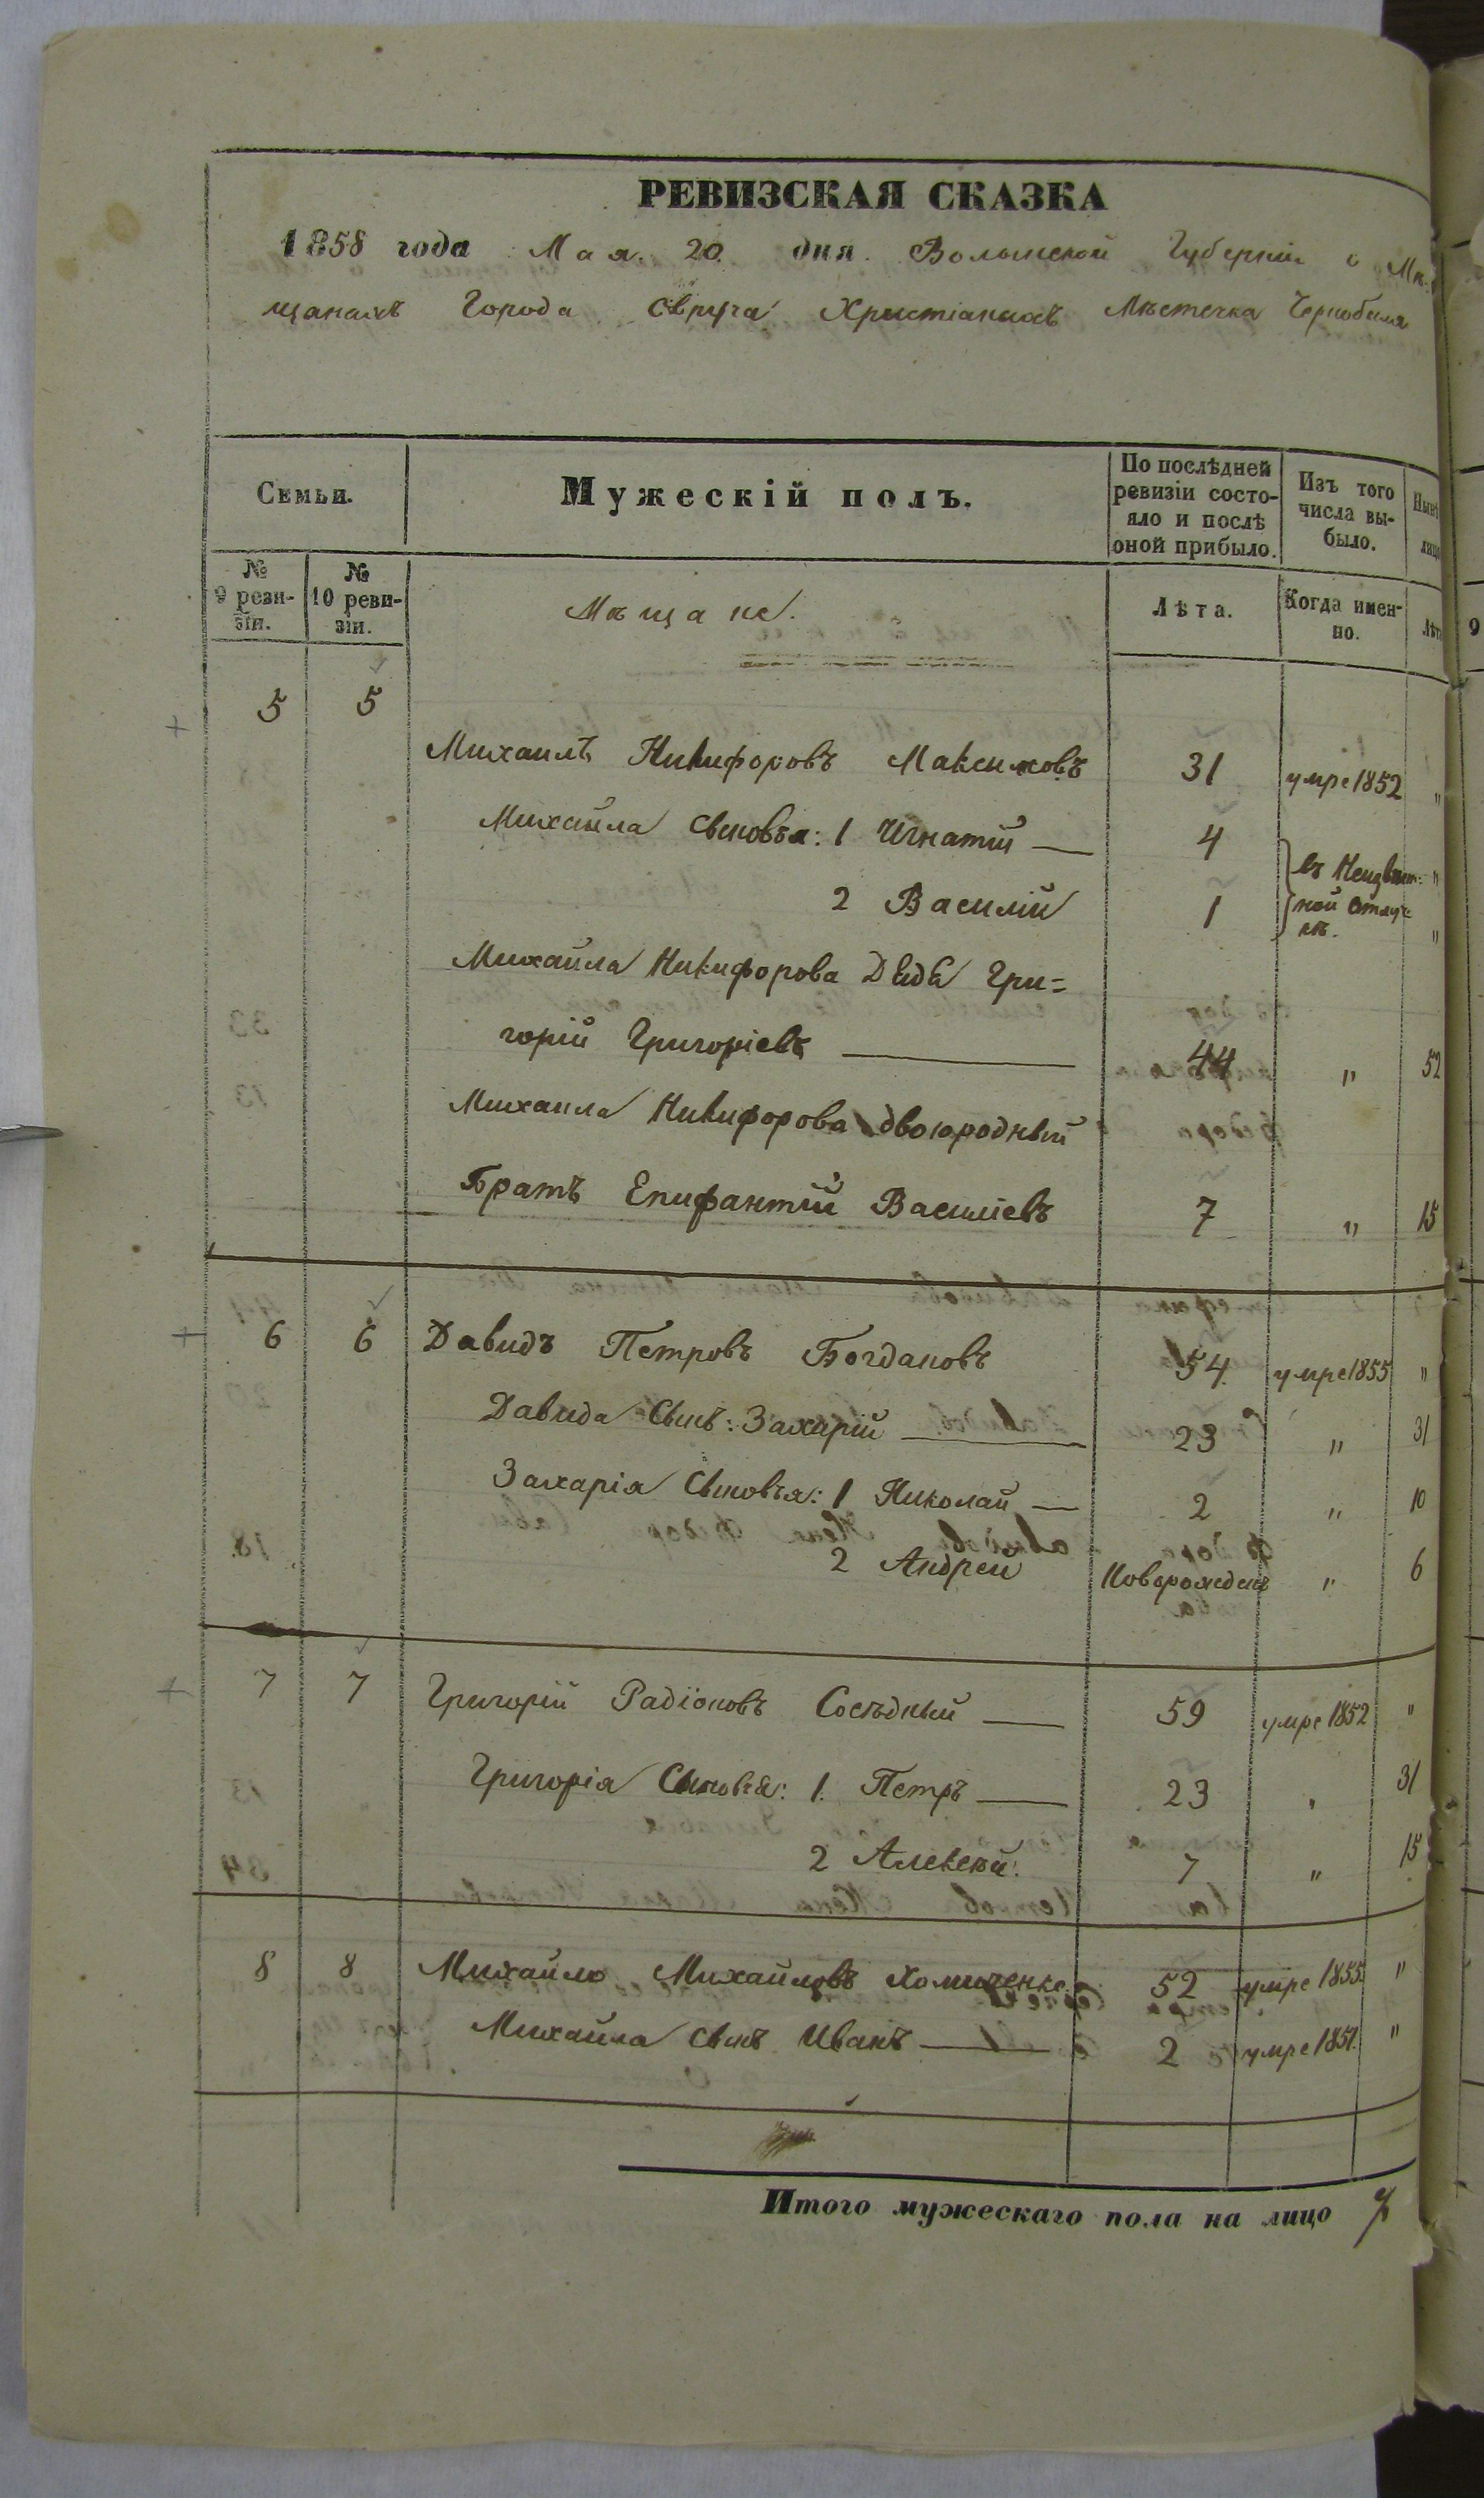 РЕВИЗСКАЯ СКАЗКА
1858 года Мая 20 дня Волынской Губерніи о Мѣ-
щанахъ Города Овруча Христіанахъ Мѣстечка Чернобиля
Семьи.
Мужескій полъ.
По послѣдней
ревизіи состо-
яло и послѣ
оной прибыло.
Изъ того
числа вы-
было.
№
9 реви-
зіи.
№
10 реви-
зіи.
Мѣщане.
Лѣта.
Когда имен-
но.
5 5
Михаилъ Никифоровъ Максимовъ 31 умре 1852 "
Михайла Сыновья: 1 Игнатій — 4 въ Неизвѣст- "
2 Василій 1 ной Отлуч-
кѣ. "
Михайла Никифорова Дядя Гри=
горій Григоріевъ — 44 " 52
Михаила Никифорова двоюродный
Братъ Епифантій Василіевъ 7 " 15
6 6 Давидъ Петровъ Богдановъ 54 умре 1855 "
Давида Сынъ: Захарій — 23 " 31
Захарія Сыновья: 1 Николай — 2 " 10
2 Андрей Новорожден " 6
7 7 Григорій Радіоновъ Сосѣдный — 59 умре 1852 "
Григорія Сыновья: 1. Петръ — 23 " 31
2 Алексѣй. 7 " 15
8 8 Михайло Михайловъ Хомиченко 52 умре 1855 "
Михайла сынъ Иванъ — 2 умре 1851. "
Итого мужескаго пола на лицо 7